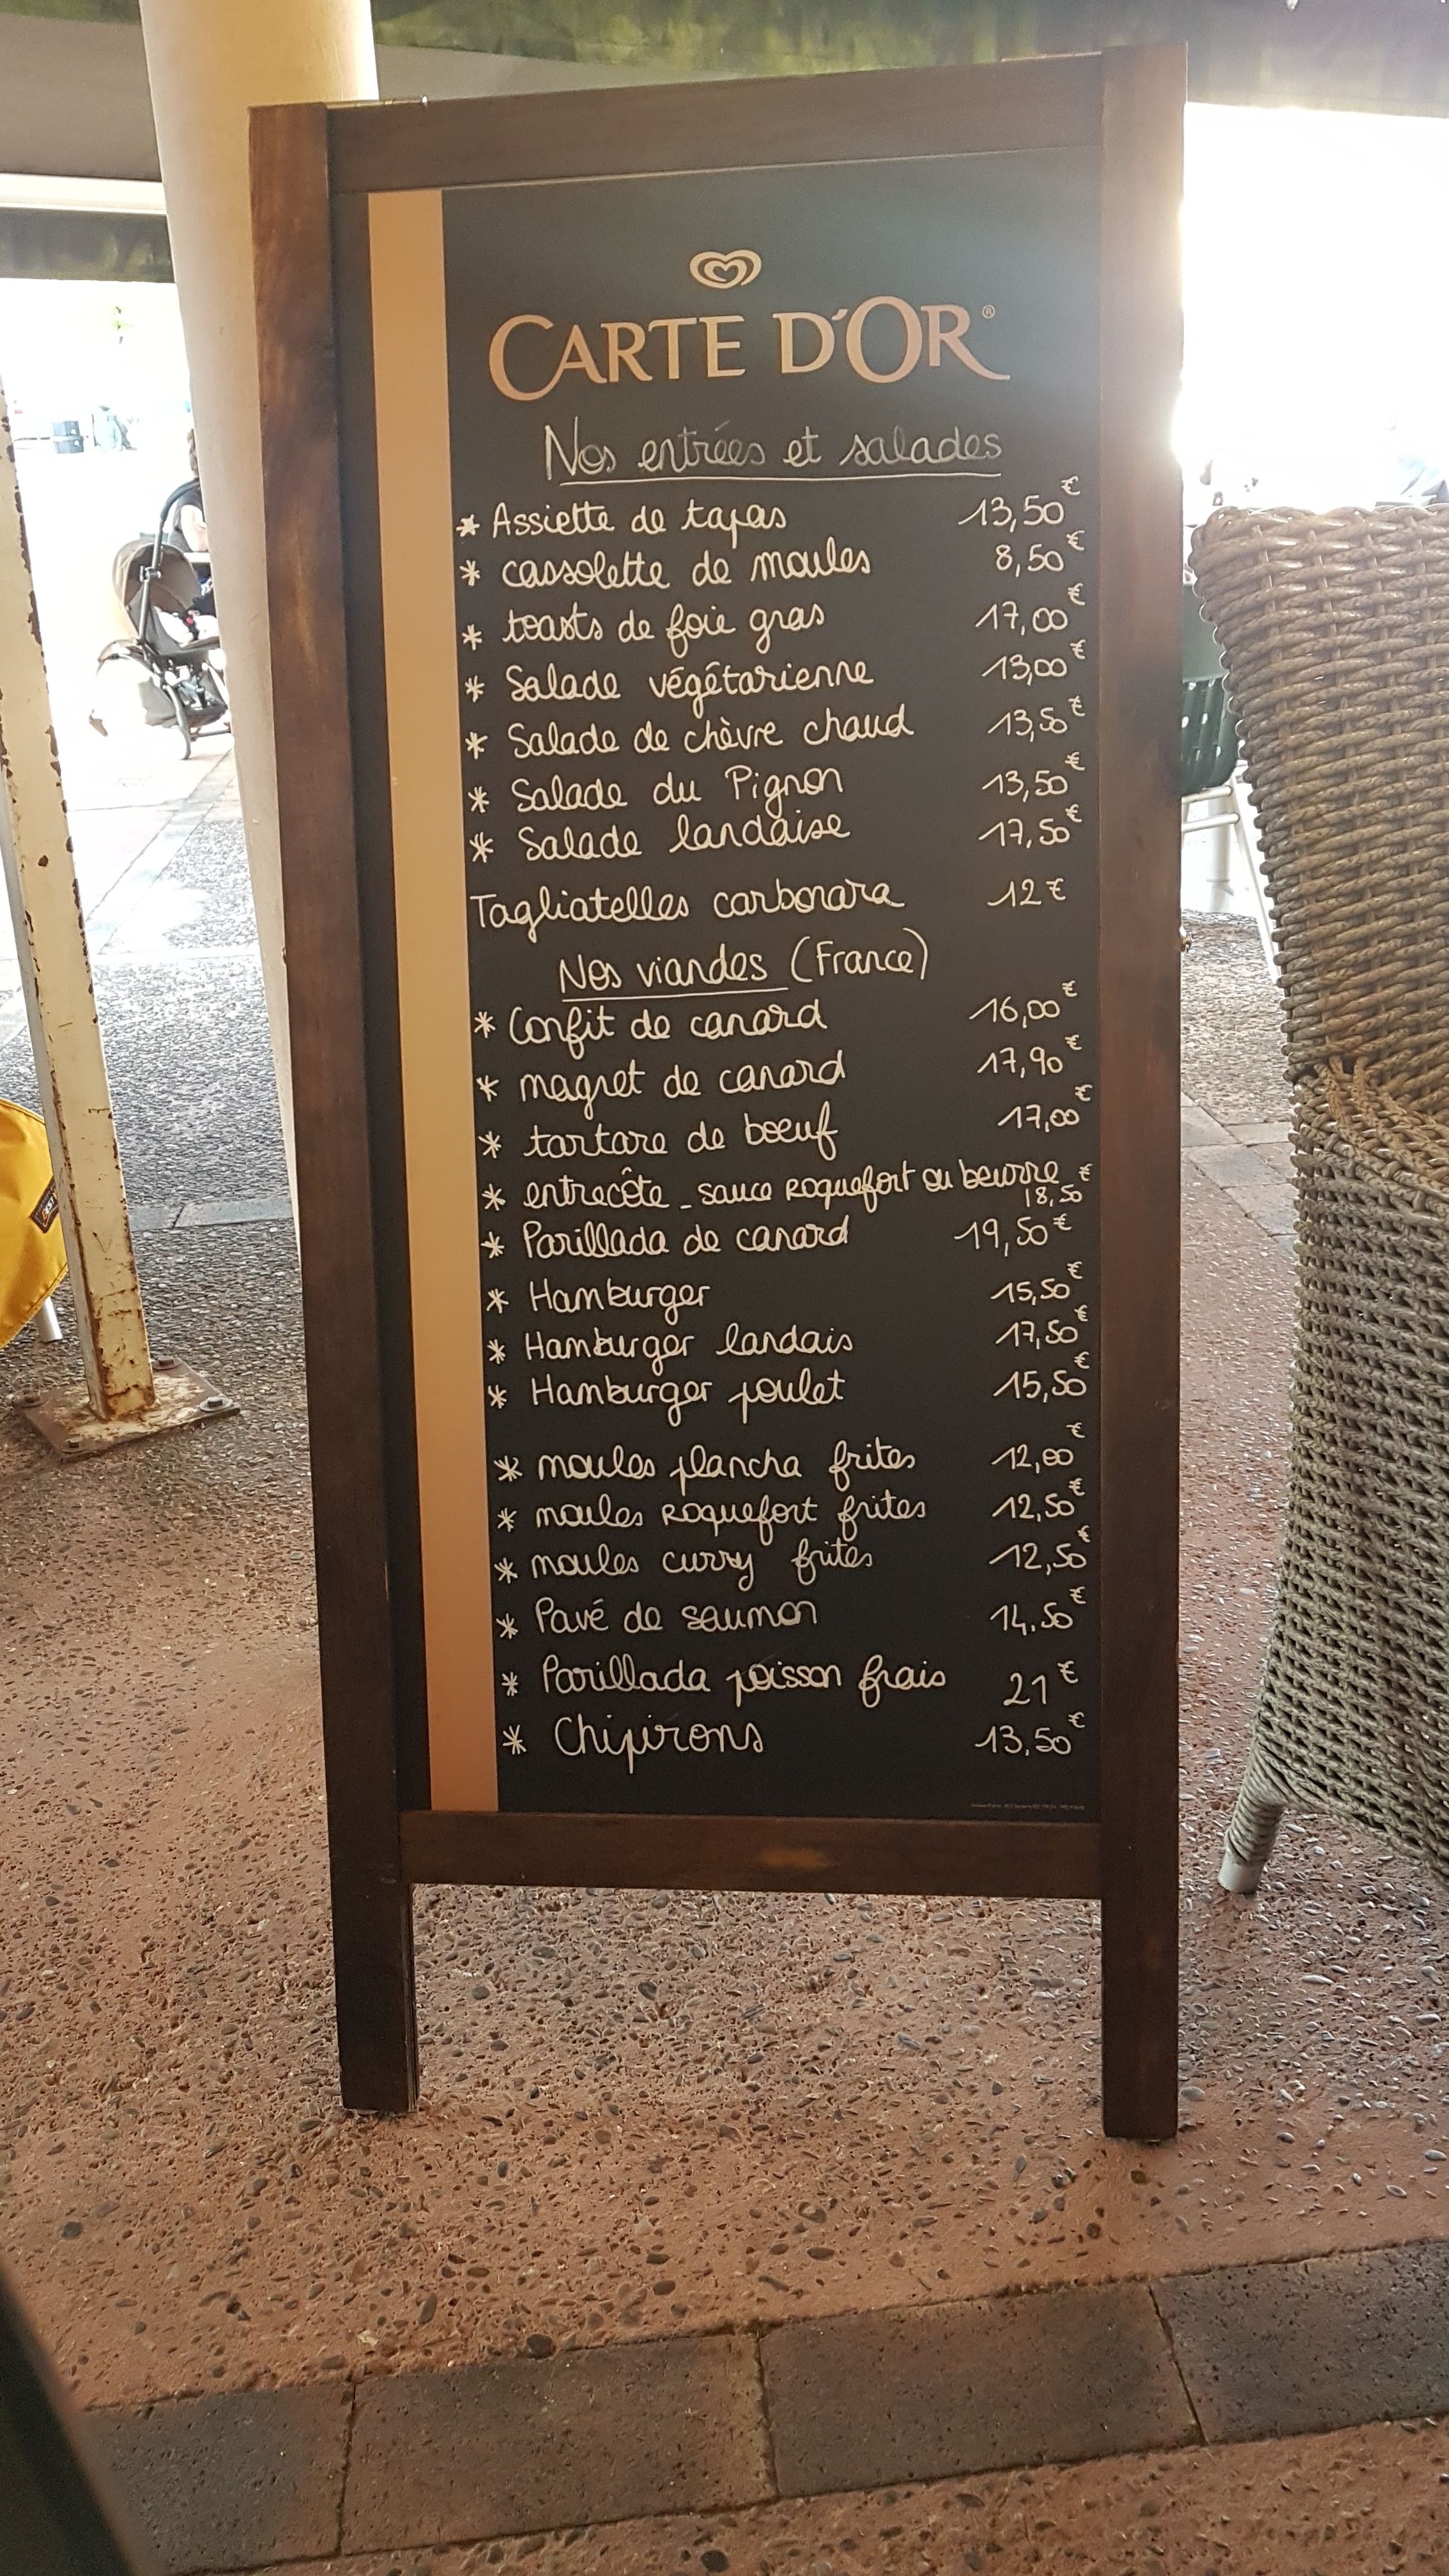 CARTE D'OR®
Nos entrées et salades
* Assiette de tapas 13,50€
* cassolette de moules 8,50€
* toasts de foie gras 17,00€
* Salade végétarienne 13,00€
* Salade de chèvre chaud 13,50€
* Salade du Pignon 13,50€
* Salade landaise 17,50€
Tagliatelles carbonara 12€
Nos viandes (France)
* Confit de canard 16,00€
* magret de canard 17,90€
* tartare de boeuf 17,00€
* entrecôte - sauce roquefort ou beurre €
18,50
* Parillada de canard 19,50€
* Hamburger 15,50€
* Hamburger landais 17,50€
* Hamburger poulet 15,50€
* moules plancha frites 12,00€
* moules roquefort frites 12,50€
* moules curry frites 12,50€
* Pavé de saumon 14.50€
* Parillada poisson frais 21€
* Chipirons 13,50€